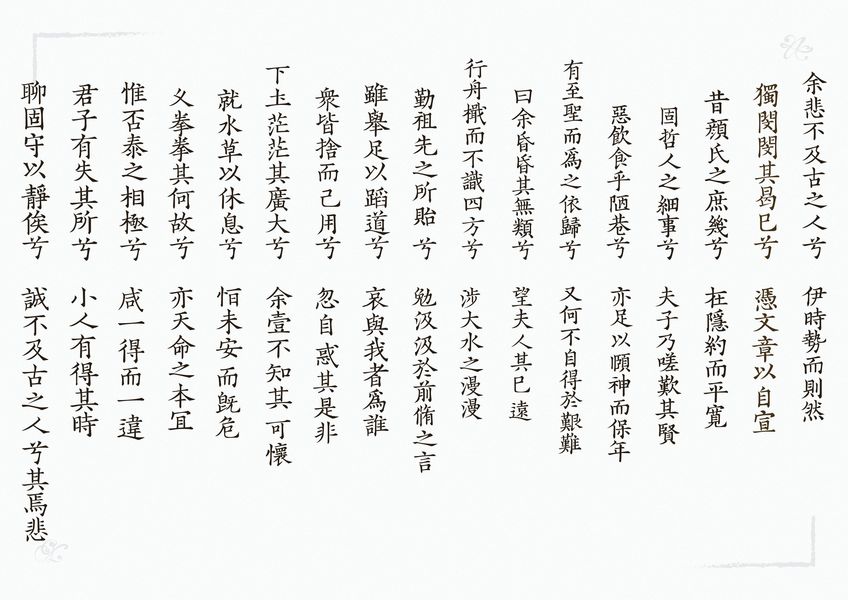 余悲不及古之人兮 伊時勢而則然
獨閔閔其曷已兮 憑文章以自宣
昔顏氏之庶幾兮 在隱約而平寬
固哲人之細事兮 夫子乃嗟歎其賢
惡飲食乎陋巷兮 亦足以頤神而保年
有至聖而爲之依歸兮 又何不自得於艱難
曰余昏昏其無類兮 望夫人其已遠
行舟檝而不識四方兮 涉大水之漫漫
勤祖先之所貽兮 勉汲汲於前脩之言
雖舉足以蹈道兮 哀與我者爲誰
衆皆捨而己用兮 忽自惑其是非
下土茫茫其廣大兮 余壹不知其可懷
就水草以休息兮 恒未安而旣危
久拳拳其何故兮 亦天命之本宜
惟否泰之相極兮 咸一得而一違
君子有失其所兮 小人有得其時
聊固守以靜俟兮 誠不及古之人兮其焉悲